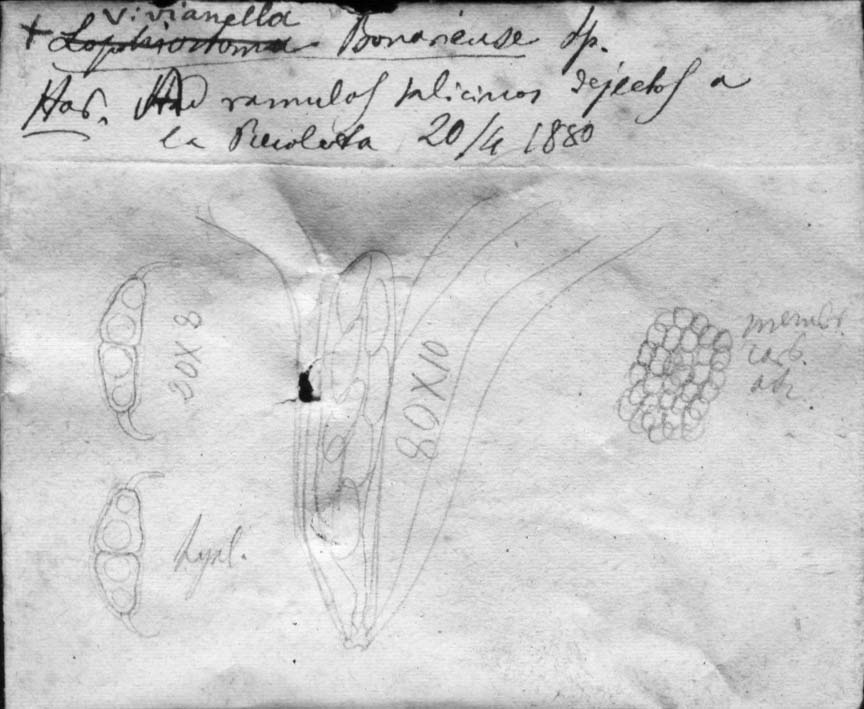 Vivianella
+ Lophiostoma Bonariense Sp.
Hab. Ad ramulos salicinos dejectos a
la Recoleta 20/4 1880
20X8
80X10
membr.
carb.
atr.
hyal.